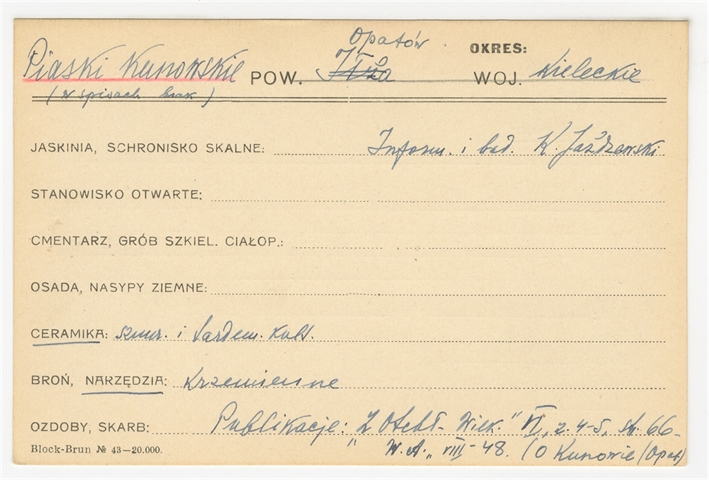 Opatów OKRES:
Piaski Kunowskie POW. Iłża WOJ. Kieleckie
(w spisach brak)
JASKINIA, SCHRONISKO SKALNE: Inform. i bad. K. Jażdżewski
STANOWISKO OTWARTE:
CMENTARZ, GRÓB SZKIEL. CIAŁOP.:
OSADA, NASYPY ZIEMNE:
CERAMIKA: sznur. i kult.
BROŃ, NARZĘDZIA: Krzemienne
OZDOBY, SKARB: Publikacje: "Z Otchł. Wiek." VI, z. 4-5, str. 66-
Block-Brun № 43-20.000. W.A." VIII-48. (O Kunowie (Opat)